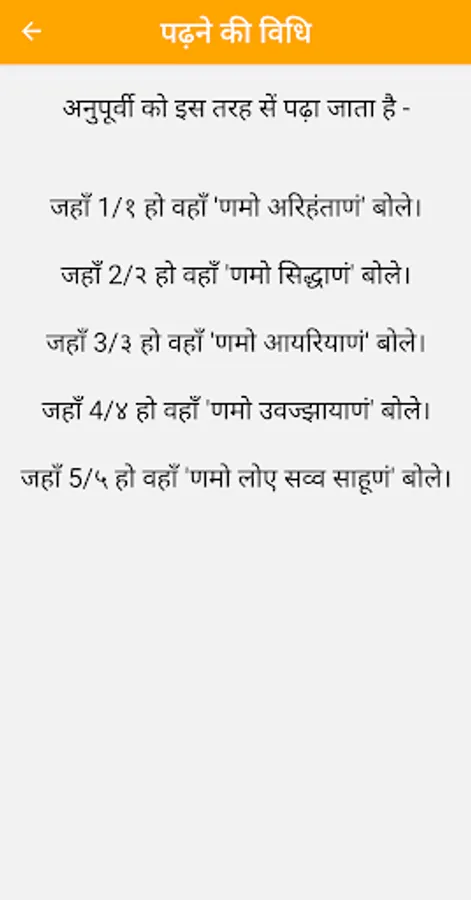 पढ़ने की विधि
अनुपूर्वी को इस तरह सें पढ़ा जाता है -
जहाँ 1/१ हो वहाँ 'णमो अरिहंताणं' बोले।
जहाँ 2/२ हो वहाँ 'णमो सिद्धाणं' बोले।
जहाँ 3/३ हो वहाँ 'णमो आयरियाणं' बोले।
जहाँ 4/४ हो वहाँ 'णमो उवज्झायाणं' बोले।
जहाँ 5/५ हो वहाँ 'णमो लोए सव्व साहूणं' बोले।